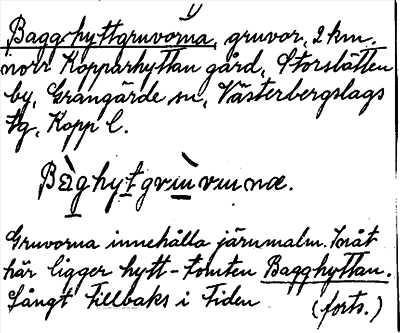 Bagghyttgruvorna, gruvor, 2 km.
norr Kopparhyttan gård, Storslätten
by, Grangärde sn, Västerbergslags
tg, Kopp l.
Bàghytgrùvvunæ.
Gruvorna innehålla järnmalm. Tvåt
här ligger hytt-tomten Bagghyttan.
Långt tillbaks i tiden (forts.)